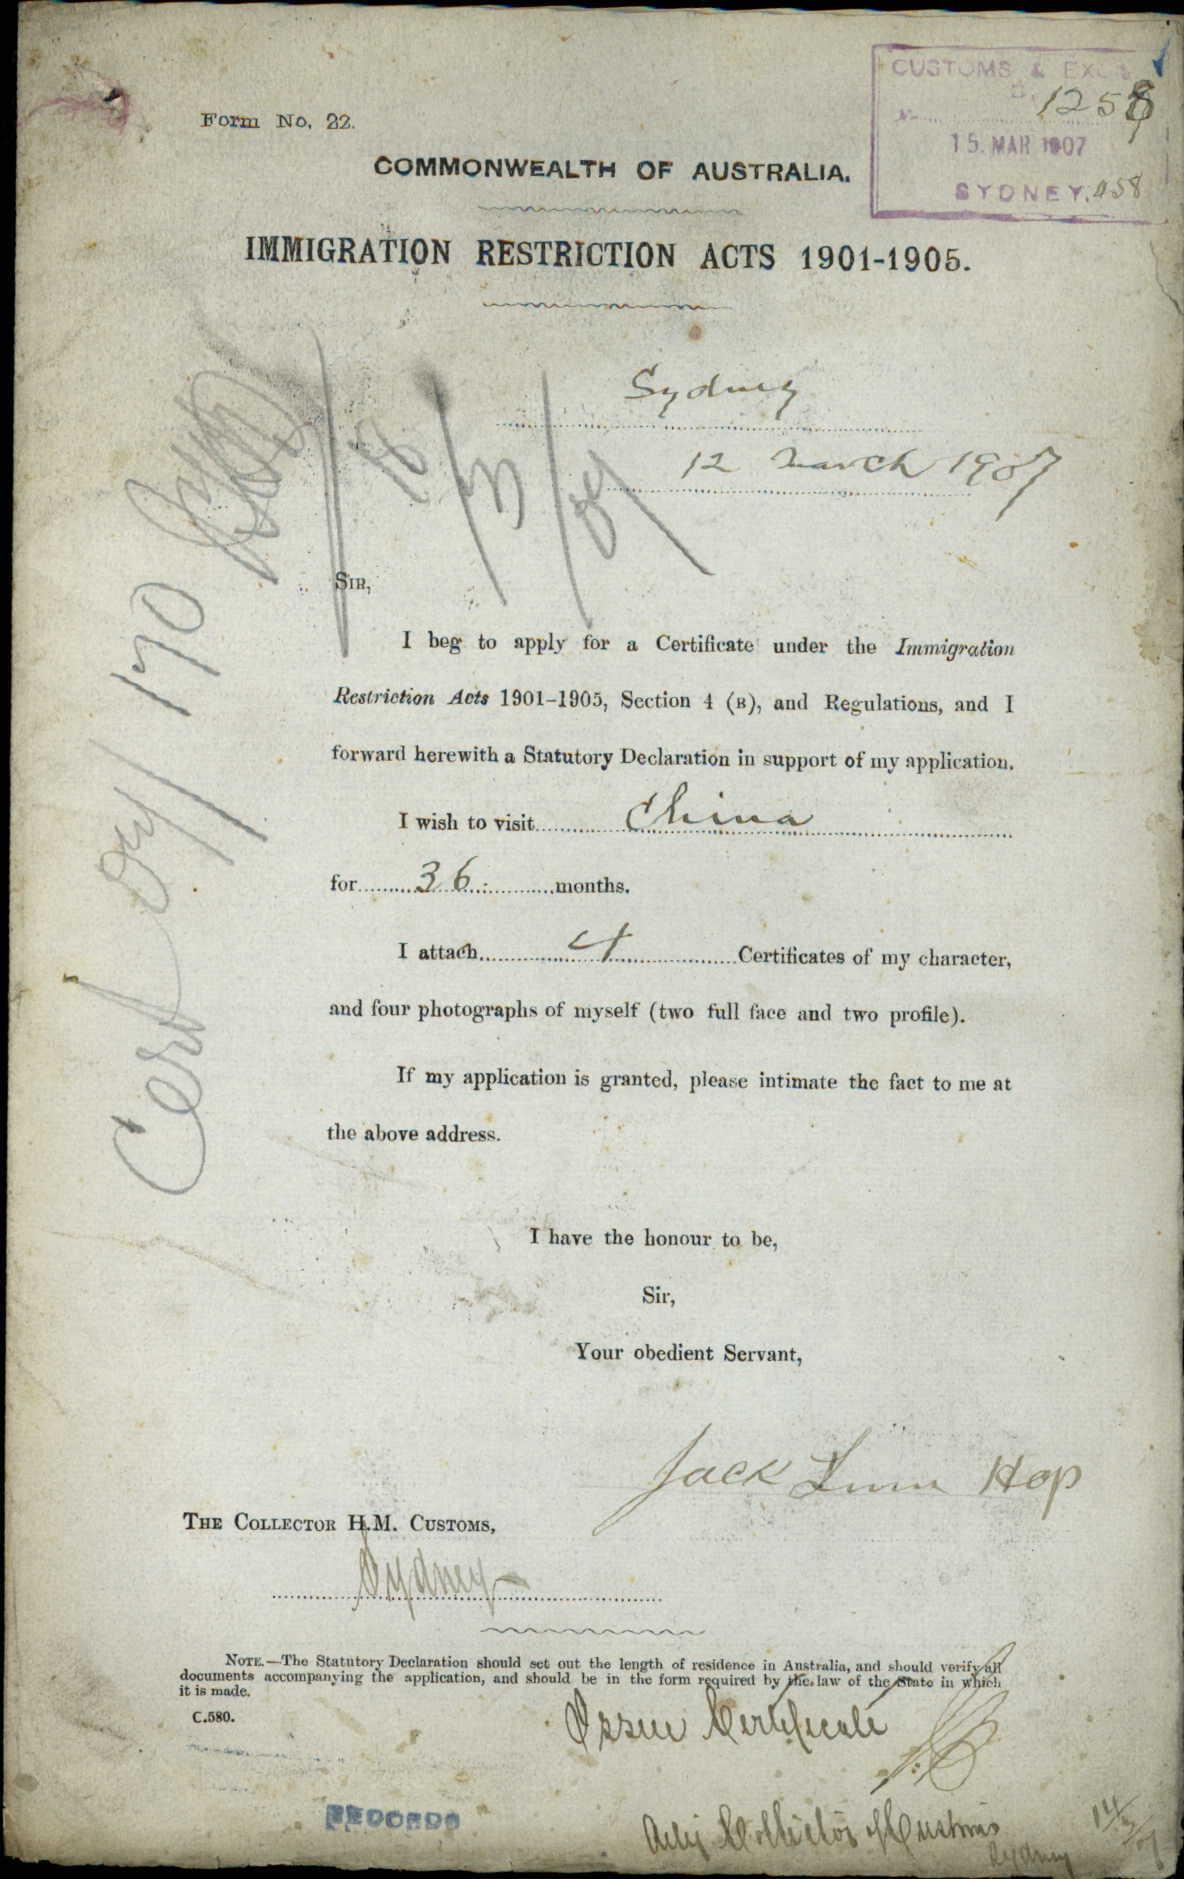 CUSTOMS & EXCISE
1258
15. MAR 1907
SYDNEY.
Form No. 22.
COMMONWEALTH OF AUSTRALIA.
IMMIGRATION RESTRICTION ACTS 1901-1905.
Sydney
12 March 1907
SIR,
I beg to apply for a Certificate under the Immigration
Restriction Acts 1901-1905, Section 4 (B), and Regulations, and I
forward herewith a Statutory Declaration in support of my application.
I wish to visit China
for 36 months.
I attach 4 Certificates of my character,
and four photographs of myself (two full face and two profile).
If my application is granted, please intimate the fact to me at
the above address.
I have the honour to be,
Sir,
Your obedient Servant,
Jack Hop
THE COLLECTOR H.M. CUSTOMS,
Sydney
NOTE.—The Statutory Declaration should set out the length of residence in Australia, and should verify all
documents accompanying the application, and should be in the form required by the law of the State in which
it is made.
C.580.
Issue Certificate
RECORDS
Actg Collector of Customs
Sydney
14/3/07
Cert 07/170
18/3/07